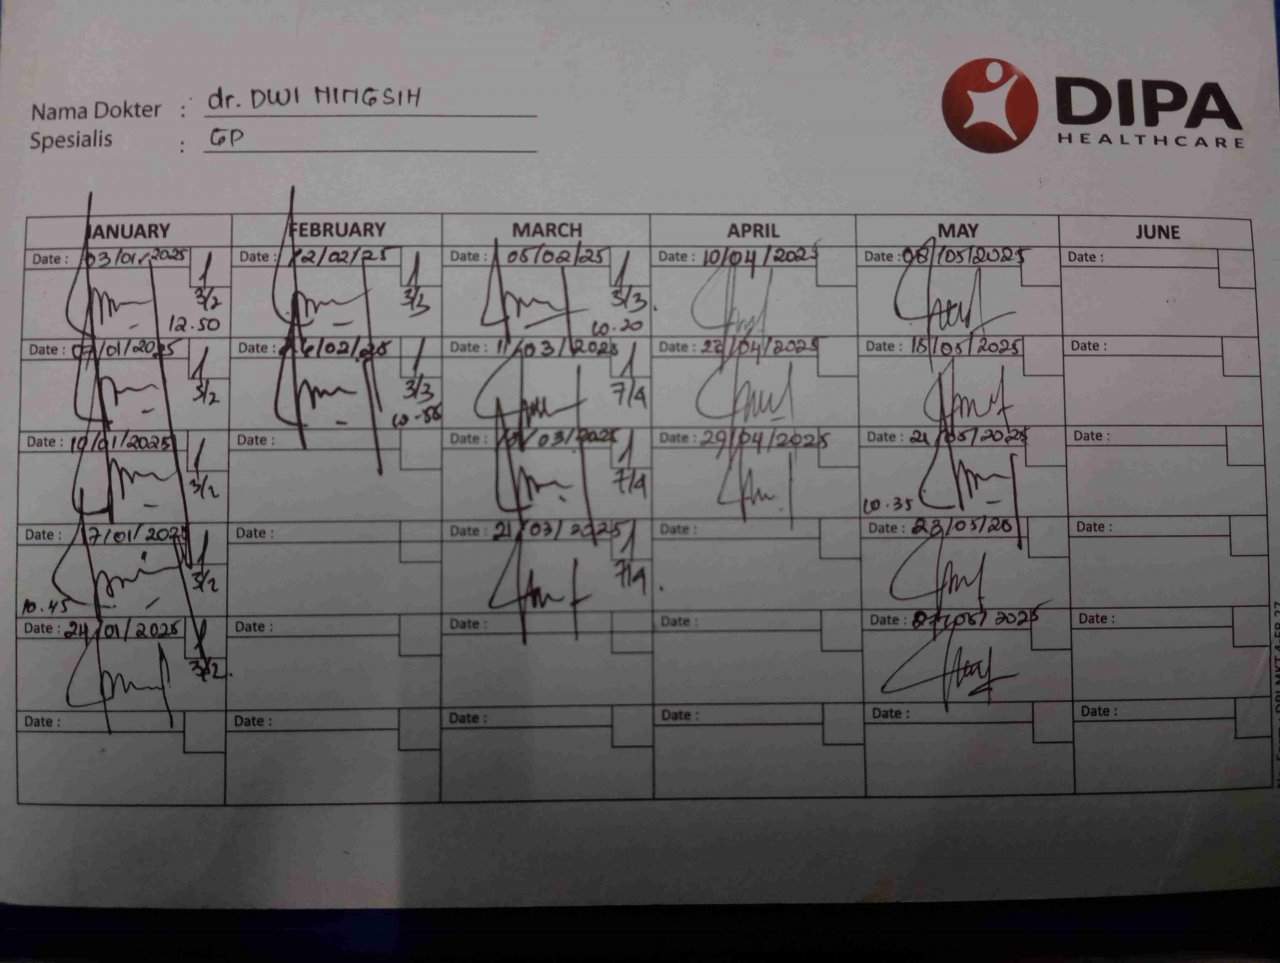 Nama Dokter : dr. DWI NINGSIH
Spesialis : GP
DIPA
HEALTHCARE
JANUARY FEBRUARY MARCH APRIL MAY JUNE
Date : 03/01/2025 Date : 12/02/25 Date : 05/02/25 Date : 10/04/2025 Date : 08/05/2025 Date :
3/2 3/3 3/3
12.50 10.20
Date : 07/01/2025 Date : /02/25 Date : 11/03/2025 Date : 22/04/2025 Date : 15/05/2025 Date :
3/2 3/3 7/4
Date : 10/01/2025 Date : Date : /03/2025 Date : 29/04/2025 Date : 21/05/2025 Date :
3/2 7/4 10.35
Date : 17/01/2025 Date : Date : 21/03/2025 Date : Date : 23/05/20 Date :
3/2 7/4
10.45
Date : 24/01/2025 Date : Date : Date : Date : 27/05/2025 Date :
3/2
Date : Date : Date : Date : Date : Date :